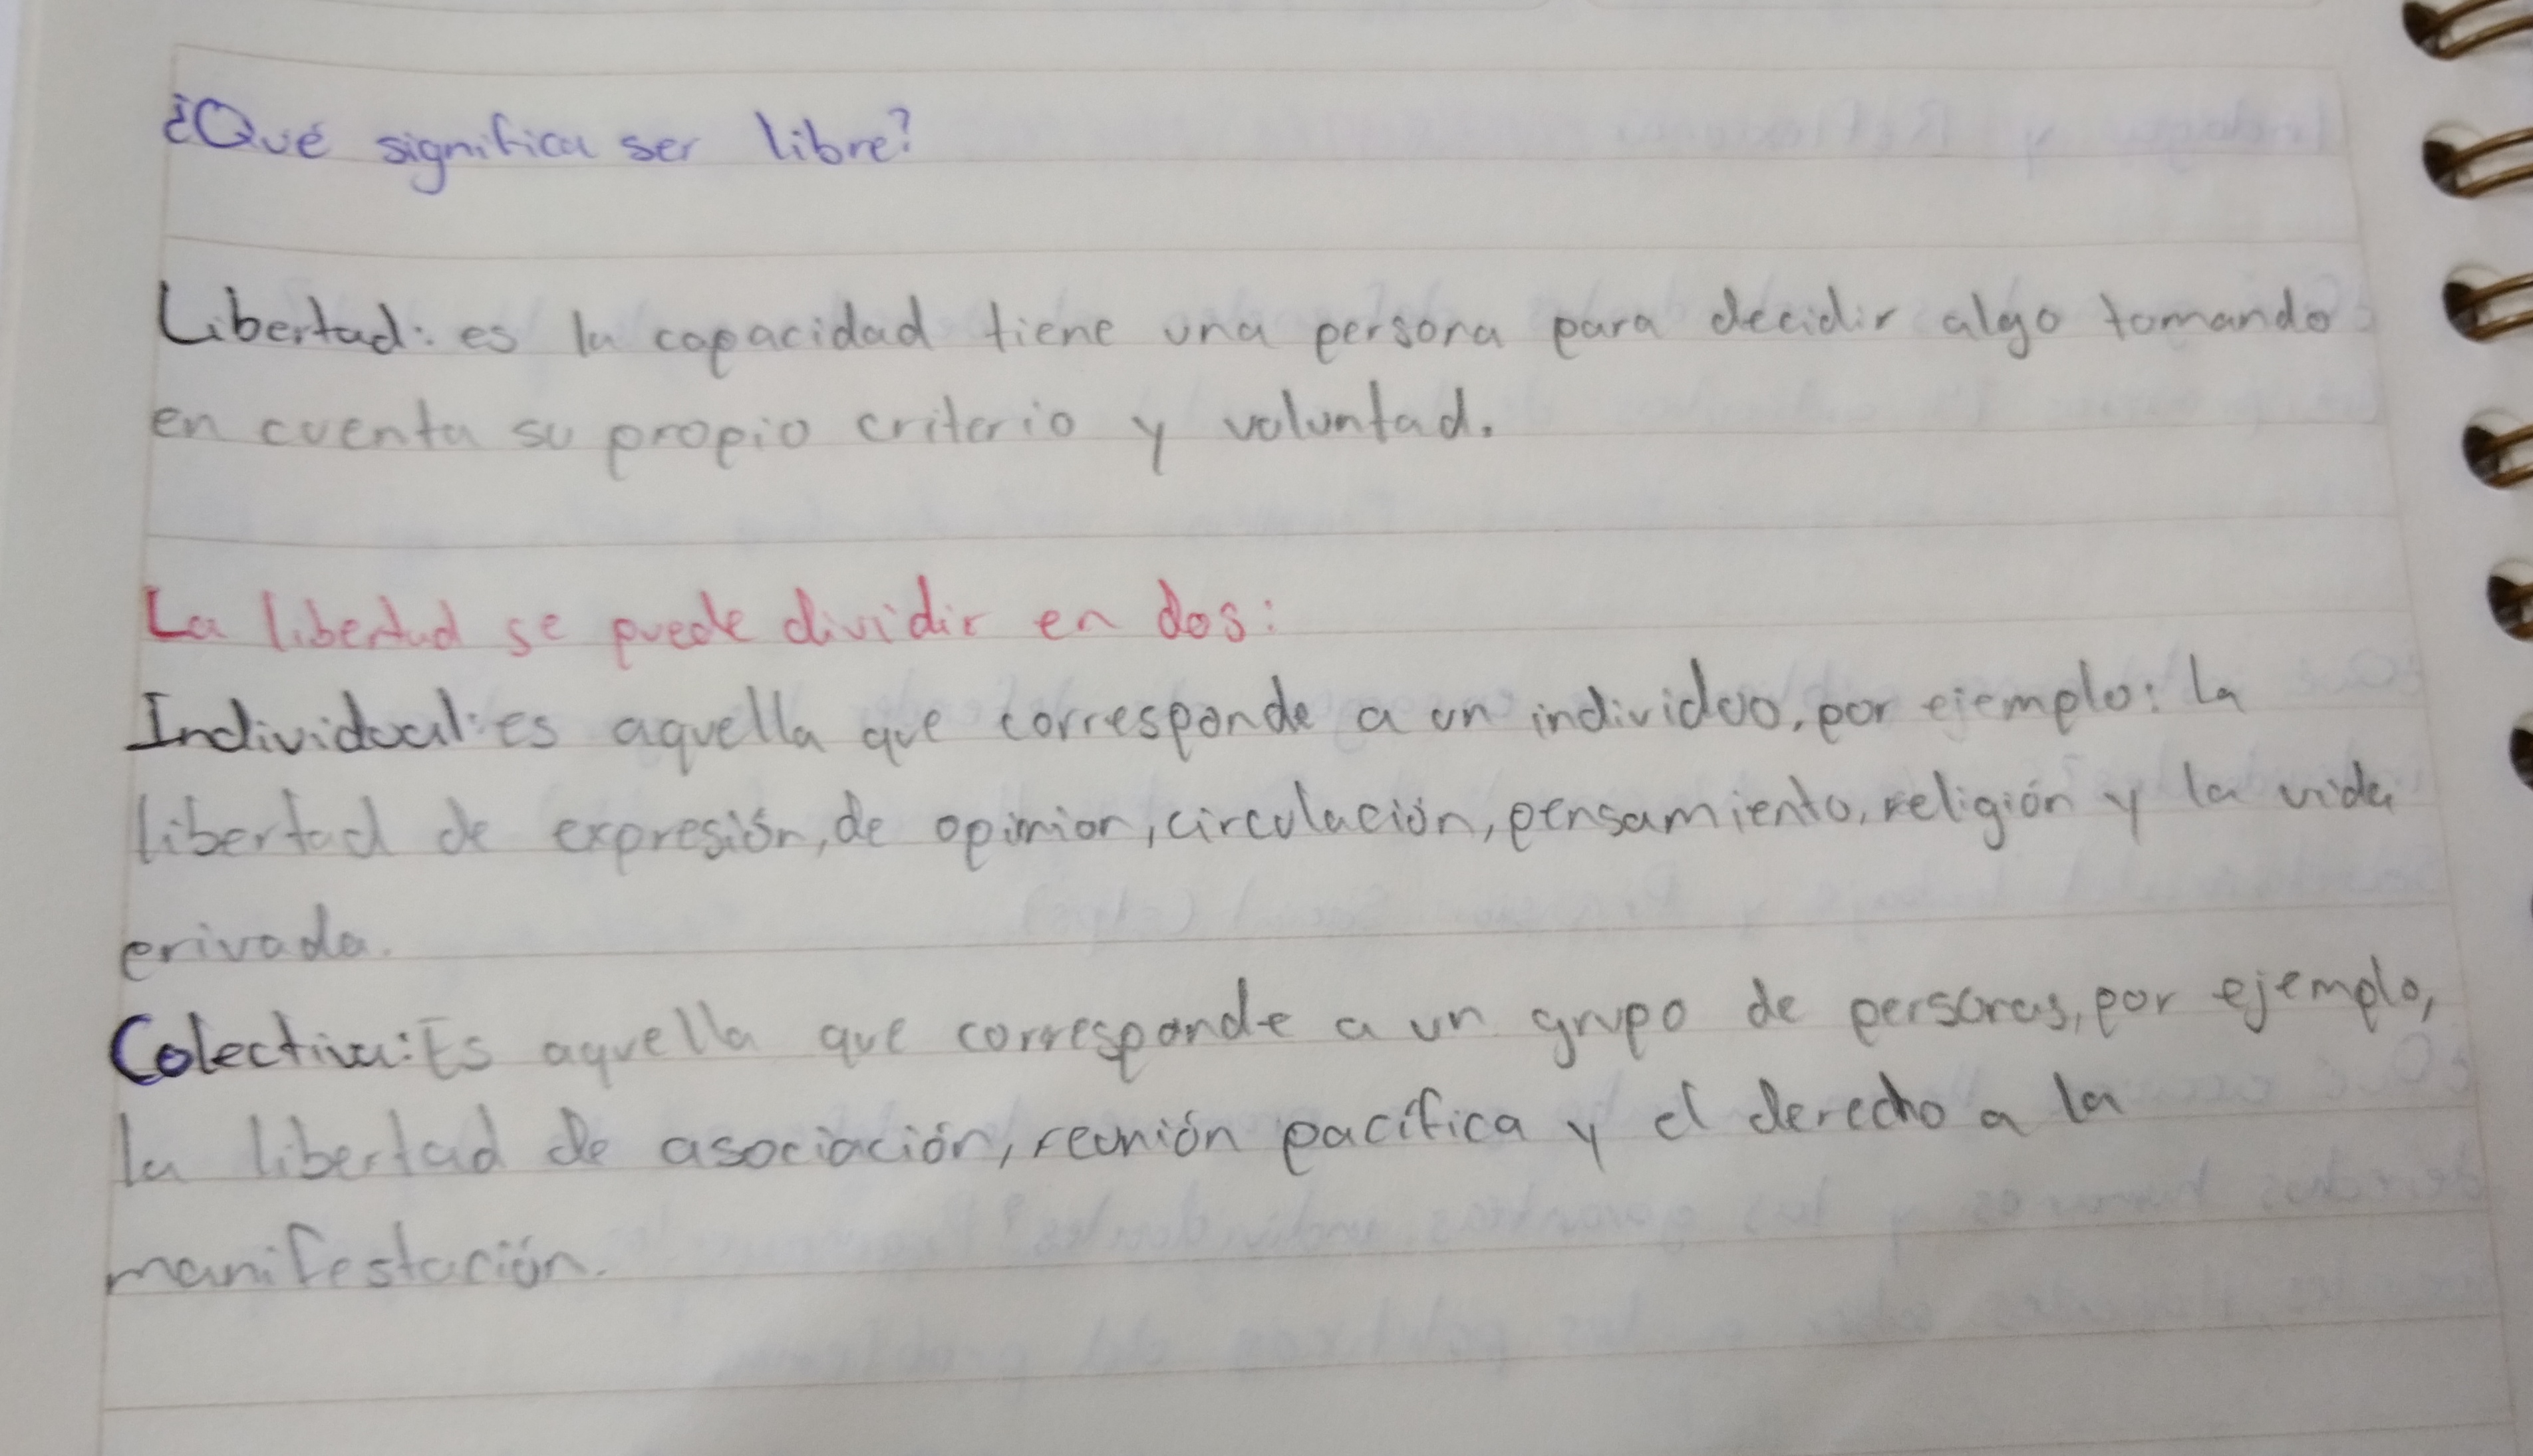 ¿Qué significa ser libre?
Libertad: es la capacidad tiene una persona para decidir algo tomando
en cuenta su propio criterio y voluntad.
La libertad se puede dividir en dos:
Individual: es aquella que corresponde a un individuo, por ejemplo: la
libertad de expresión, de opinion, circulación, pensamiento, religión y la vida
privada.
Colectiva: Es aquella que corresponde a un grupo de personas, por ejemplo,
la libertad de asociación, reunión pacífica y el derecho a la
manifestación.